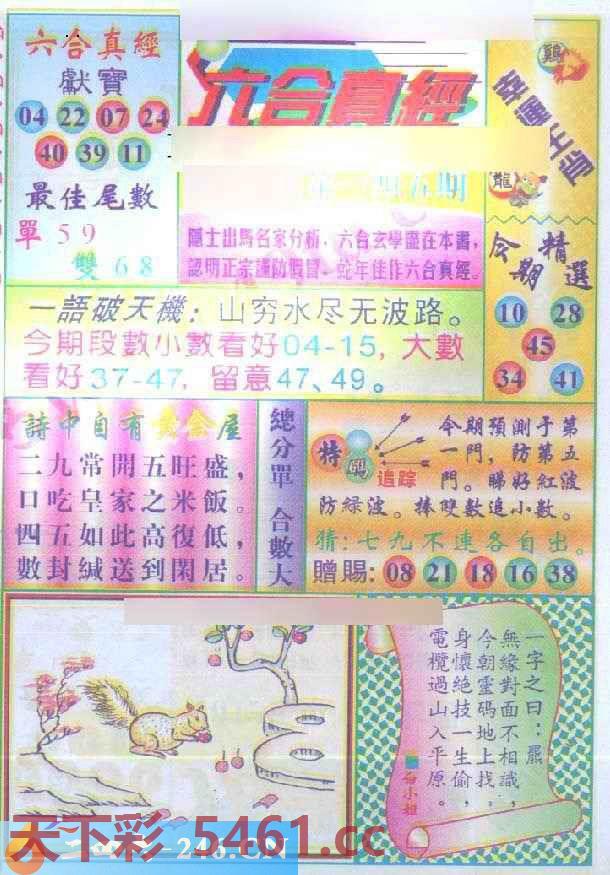 六合真經
獻寶
04 22 07 24
40 39 11
最佳尾數
單 59
雙 68
六合真經
五期
隱士出馬名家分析，六合玄學盡在本書，
認明正宗謹防假冒，蛇年佳作六合真經。
鷄
龍
今期精選
10 28
45
34 41
一語破天機：山穷水尽无波路。
今期段數小數看好04-15，大數
看好37-47，留意47、49。
詩中自有黃金屋
二九常開五旺盛，
口吃皇家之米飯。
四五如此高復低，
數封緘送到閑居。
總分單 合數大
特碼
追踪
今期預測于第
一門，防第五
門。睇好紅波
防綠波。棒雙數追小數。
猜：七九不連各自出。
贈賜：08 21 18 16 38
一字之曰：羆
無緣對面不相識，
今朝靈碼地上找，
身懷絕技一生偷，
電欖過山入平原。
白小姐
天下彩 5461.cc
246.CN